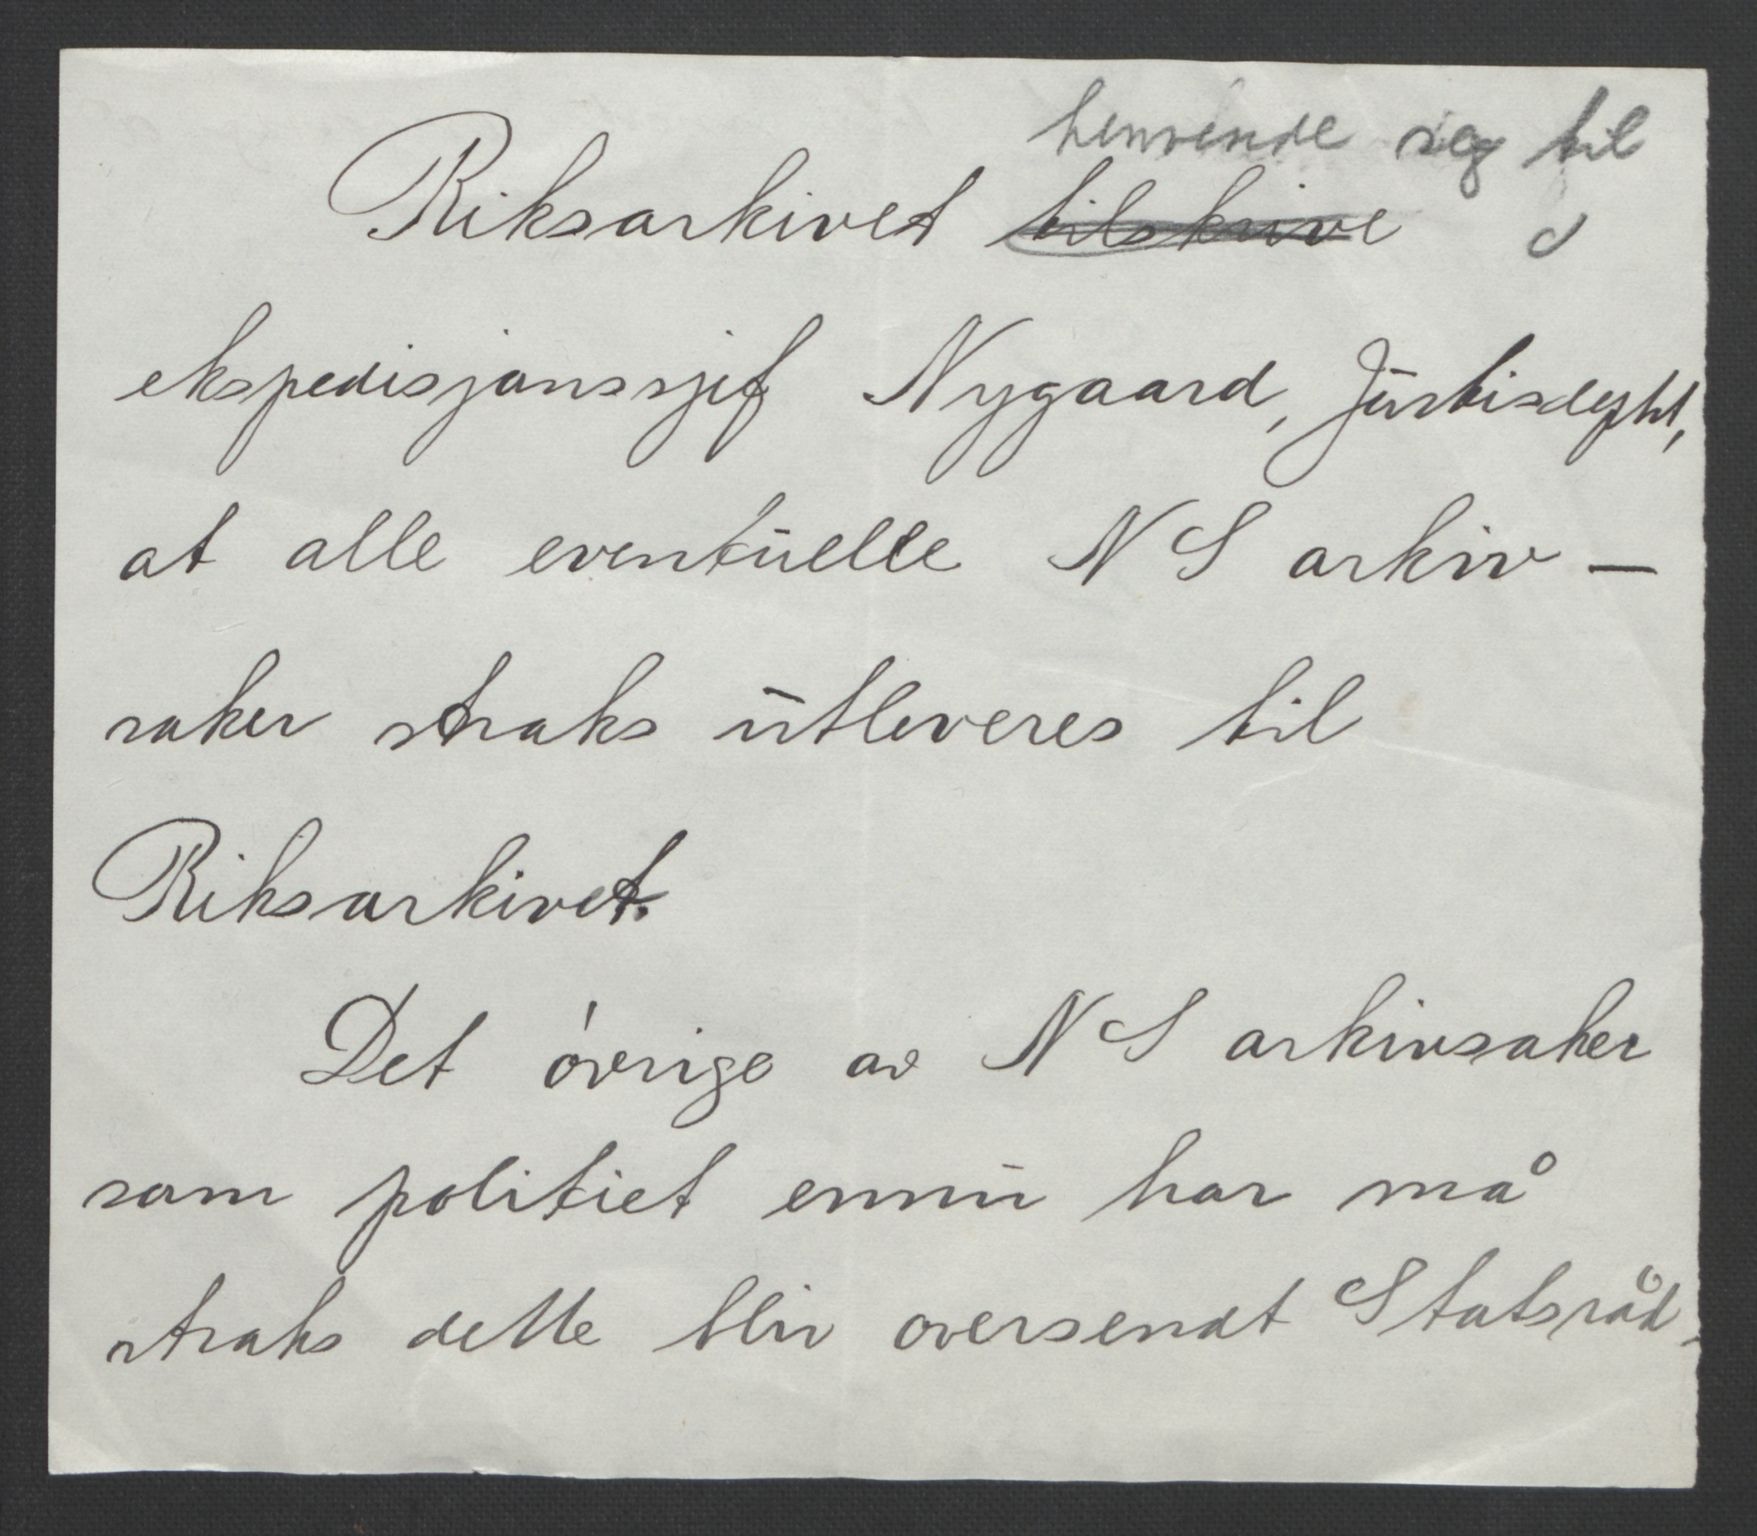 henvende seg til
Riksarkivet tilskrive
ekspedisjonssjef Nygaard, Justisdept,
at alle eventuelle NS arkiv-
saker straks utleveres til
Riksarkivet.
Det øvrige av NS arkivsaker
som politiet ennu har må
straks dette blir oversendt Statsråd